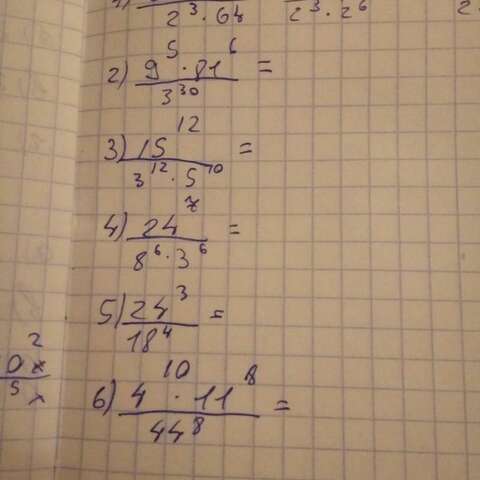 2³·64 2³·2⁶ 2
2) 9⁵·81⁶ / 3³⁰ =
3) 15¹² / 3¹²·5¹⁰ =
4) 24⁷ / 8⁶·3⁶ =
5) 24³ / 18⁴ =
6) 4¹⁰·11⁸ / 44⁸ =